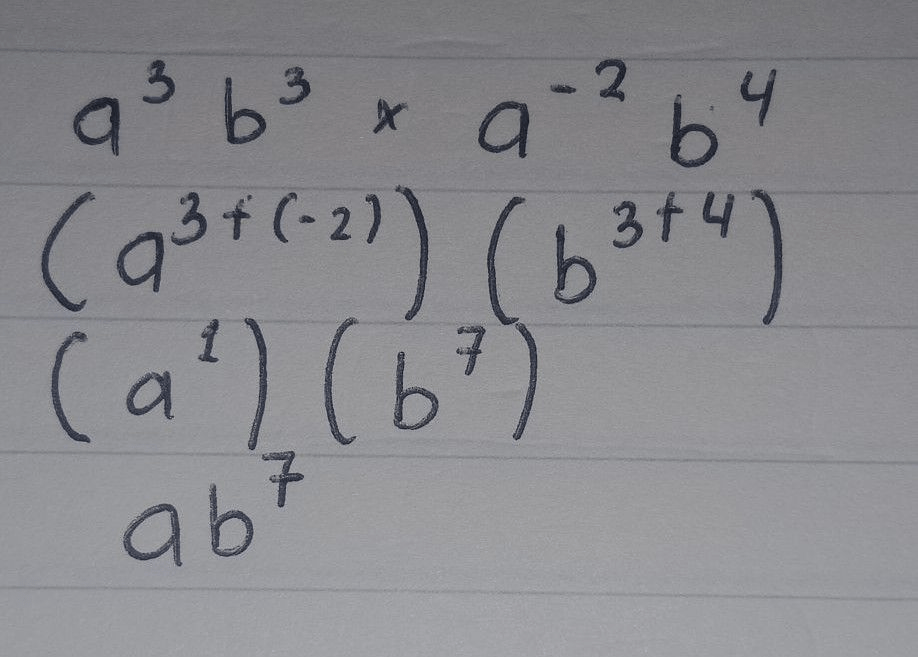 a³ b³ × a⁻² b⁴
(a³⁺⁽⁻²⁾) (b³⁺⁴)
(a¹) (b⁷)
ab⁷